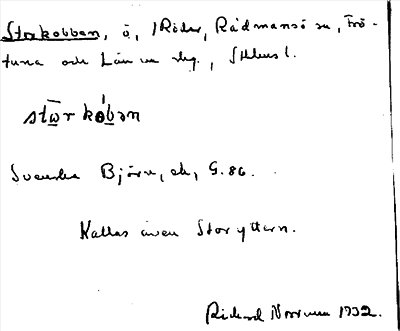 Storkobben, ö, i Råder, Rådmansö sn, Frö-
tuna och Länna skg., Sthlms l.
stōrkóbən
Svenska Björn, ek, G. 86.
Kallas även Storyttern.
Rickard Norrman 1932.